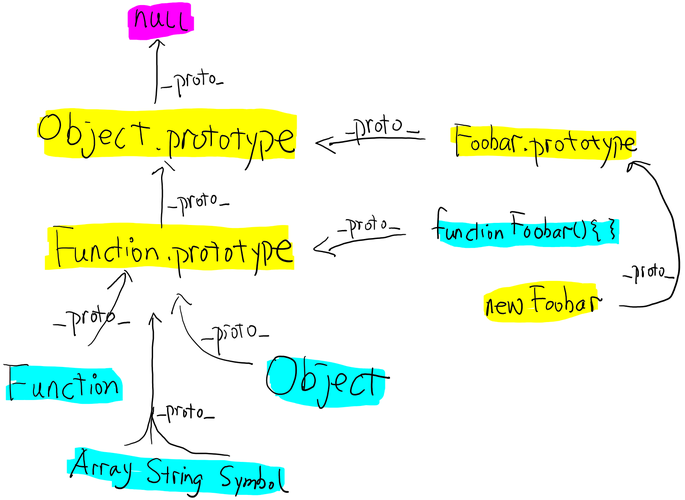 null
_proto_
Object.prototype
_proto_
Foobar.prototype
_proto_
Function.prototype
_proto_
function Foobar(){}
_proto_
new Foobar
_proto_
_proto_
Function
Object
_proto_
Array String Symbol